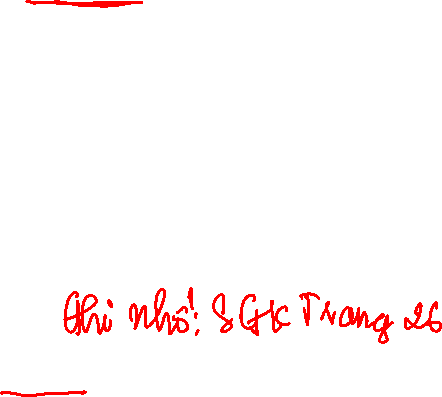 Ghi nhớ: SGK Trang 26